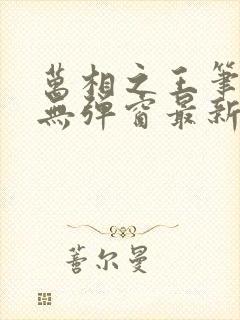 萬相之王筆
無彈窗最新
蓍尔曼